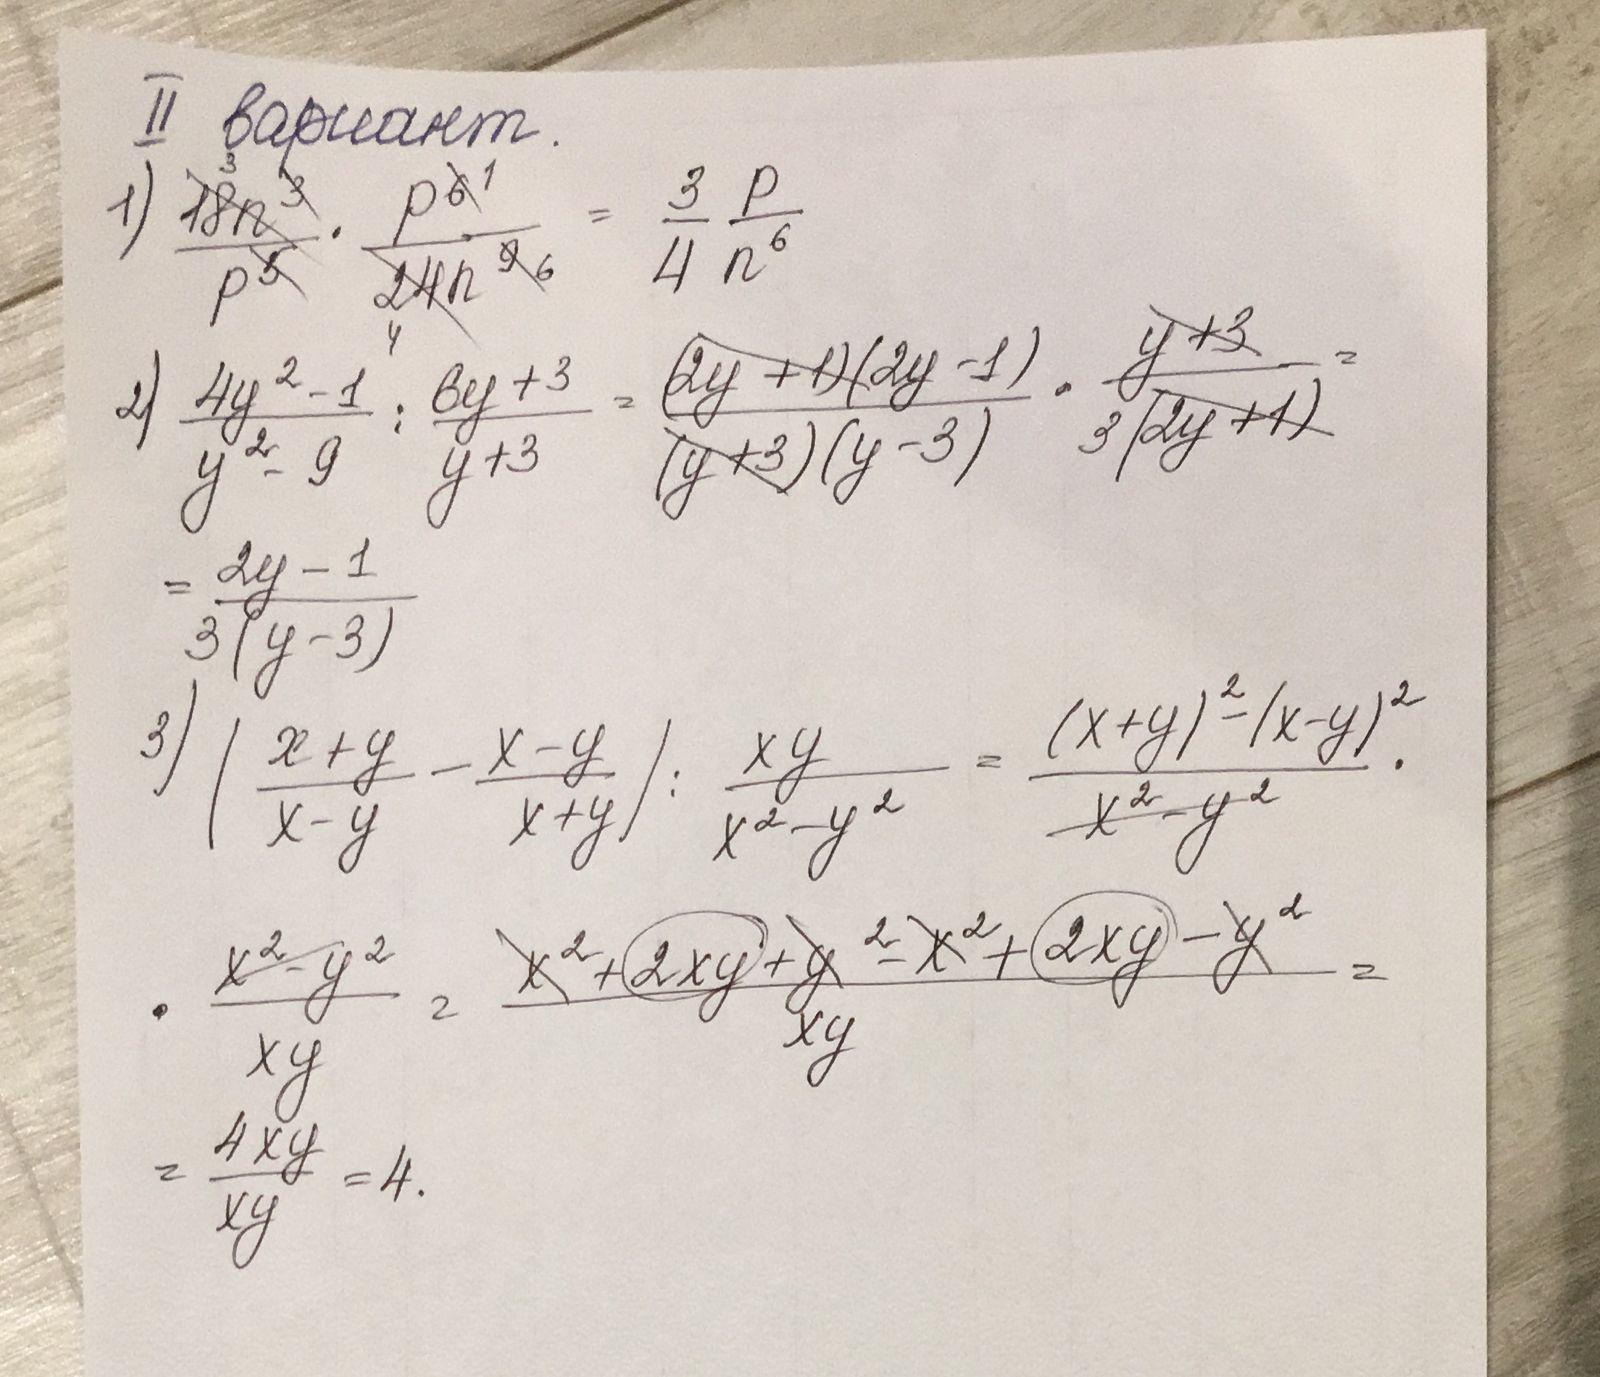 II вариант.
1) 18n³/p⁵ · p⁶/24n⁹ = 3/4 p/n⁶
2) 4y² - 1/y² - 9 : 6y + 3/y + 3 = (2y + 1)(2y - 1)/(y + 3)(y - 3) · y + 3/3(2y + 1) =
= 2y - 1/3(y - 3)
3) (x + y/x - y - x - y/x + y) : xy/x² - y² = (x + y)² - (x - y)²/x² - y² ·
· x² - y²/xy = x² + 2xy + y² - x² + 2xy - y²/xy =
= 4xy/xy = 4.